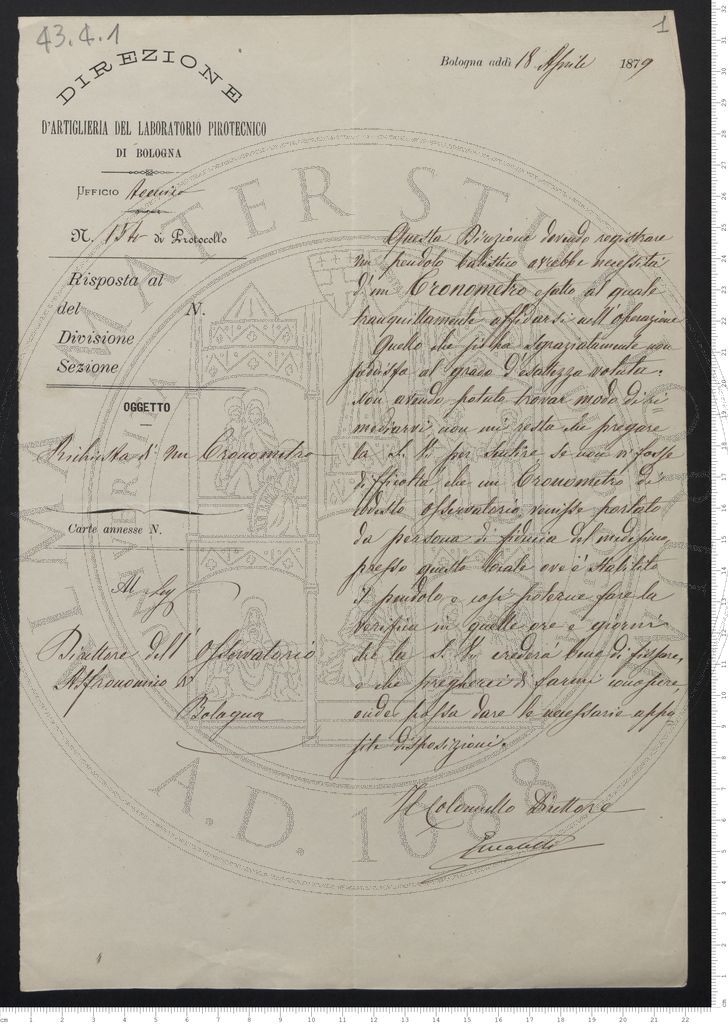 43.4.1
1
DIREZIONE
D'ARTIGLIERIA DEL LABORATORIO PIROTECNICO
DI BOLOGNA
Bologna addì 18 Aprile 1879
UFFICIO tecnico
N. 154 di Protocollo
Risposta al
del N.
Divisione
Sezione
OGGETTO
Richiesta di un Cronometro
Carte annesse N.
Al Sig
Direttore dell'Osservatorio
Astronomico di
Bologna
Questa Direzione dovendo registrare
un pendolo balistico avrebbe necessità
d'un Cronometro esatto al quale
tranquillamente affidarsi nell'operazione
Quello che si ha sgraziatamente non
al grado d'esattezza voluta.
Non avendo potuto trovar modo di ri=
mediarvi non mi resta che pregare
la S. V. per sentire se non vi fosse
difficoltà che un Cronometro di
codesto Osservatorio venisse portato
da persona di fiducia del medesimo
presso questo locale ove è stabilito
il pendolo e così poterne fare la
verifica in quelle ore e giorni
che la S. V. crederà bene di fissare,
e che pregherei di farmi conoscere,
onde possa dare le necessarie appo
site disposizioni.
Il Colonnello Direttore
ALMA MATER STUDIORUM
A.D. 1088